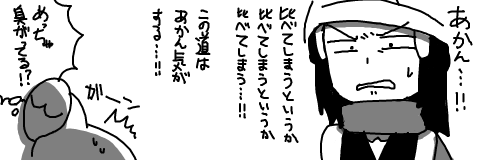 あかん…!!
比べてしまうというか
比べてしまうというか
比べてしまう…!!
この道は
あかん気が
する…!!
がーン
めっちゃ
臭がってる!?